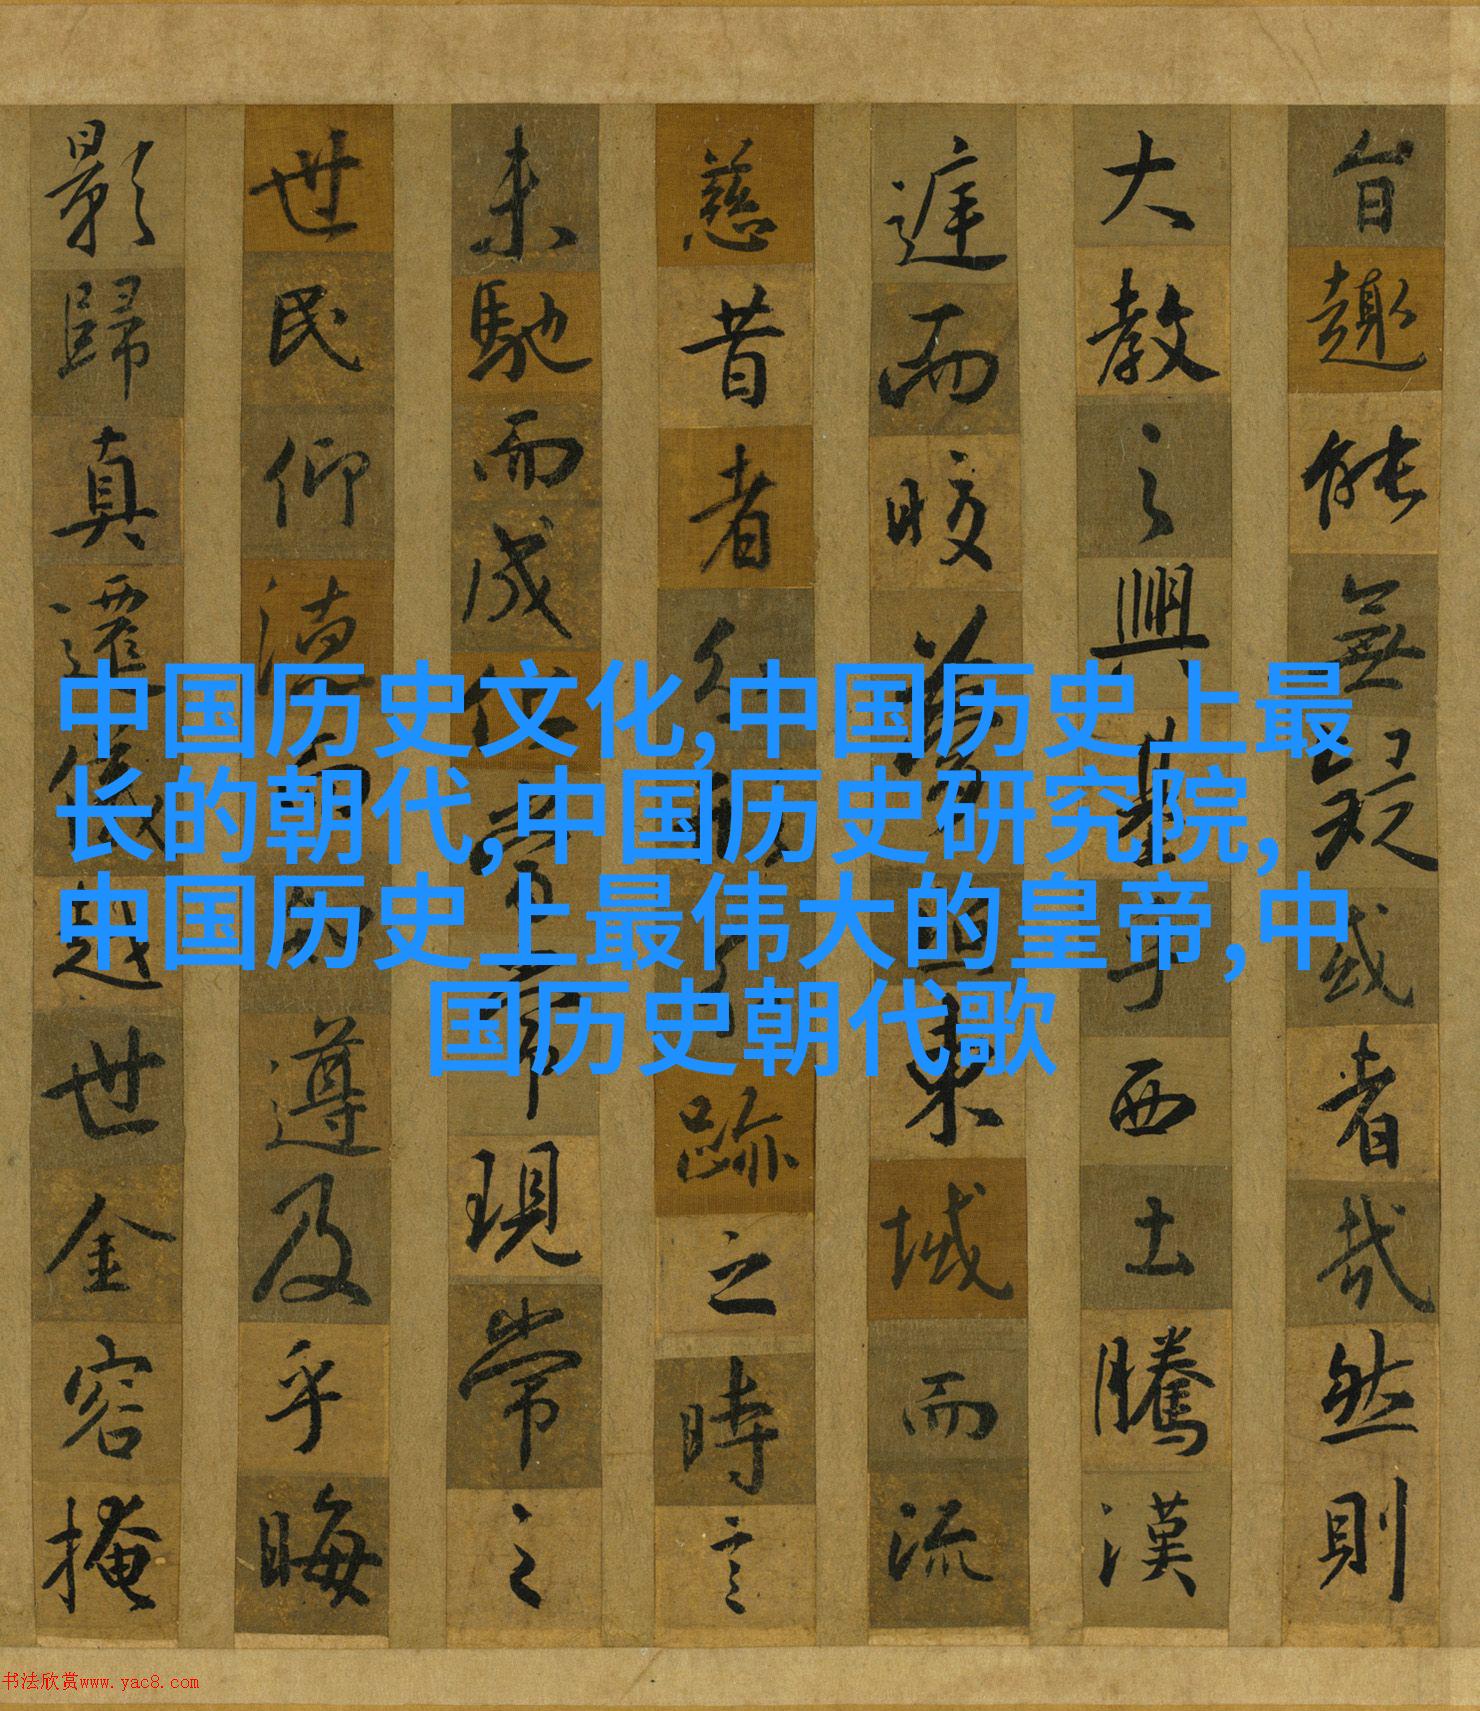 旨趣能無疑惑者哉然則
大教之興基乎西土騰漢
庭而皎夢照東域而流
慈昔者分形分跡之時言
未馳而成化當常現常之
世民仰德而知遵及乎晦
影歸真遷儀越世金容掩
中国历史文化,中国历史上最
长的朝代,中国历史研究院,
中国历史上最伟大的皇帝,中
国历史朝代歌
书法欣赏www.yac8.com